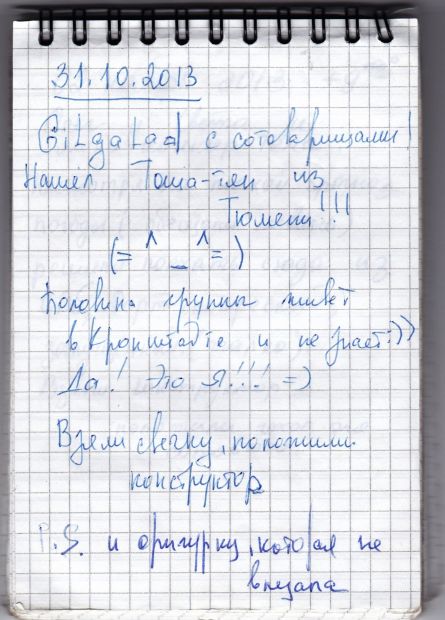 31.10.2013
GiLgaLad с сотоварищами!
Нашёл Тоша-тян из
Тюмени!!!
(=^_^=)
Половина группы живёт
в Кронштадте и не знает:))
Да! Это Я!!! =)
Взяли свечку, положили
конструктор
P.S. и фигурку, которая не
влезала